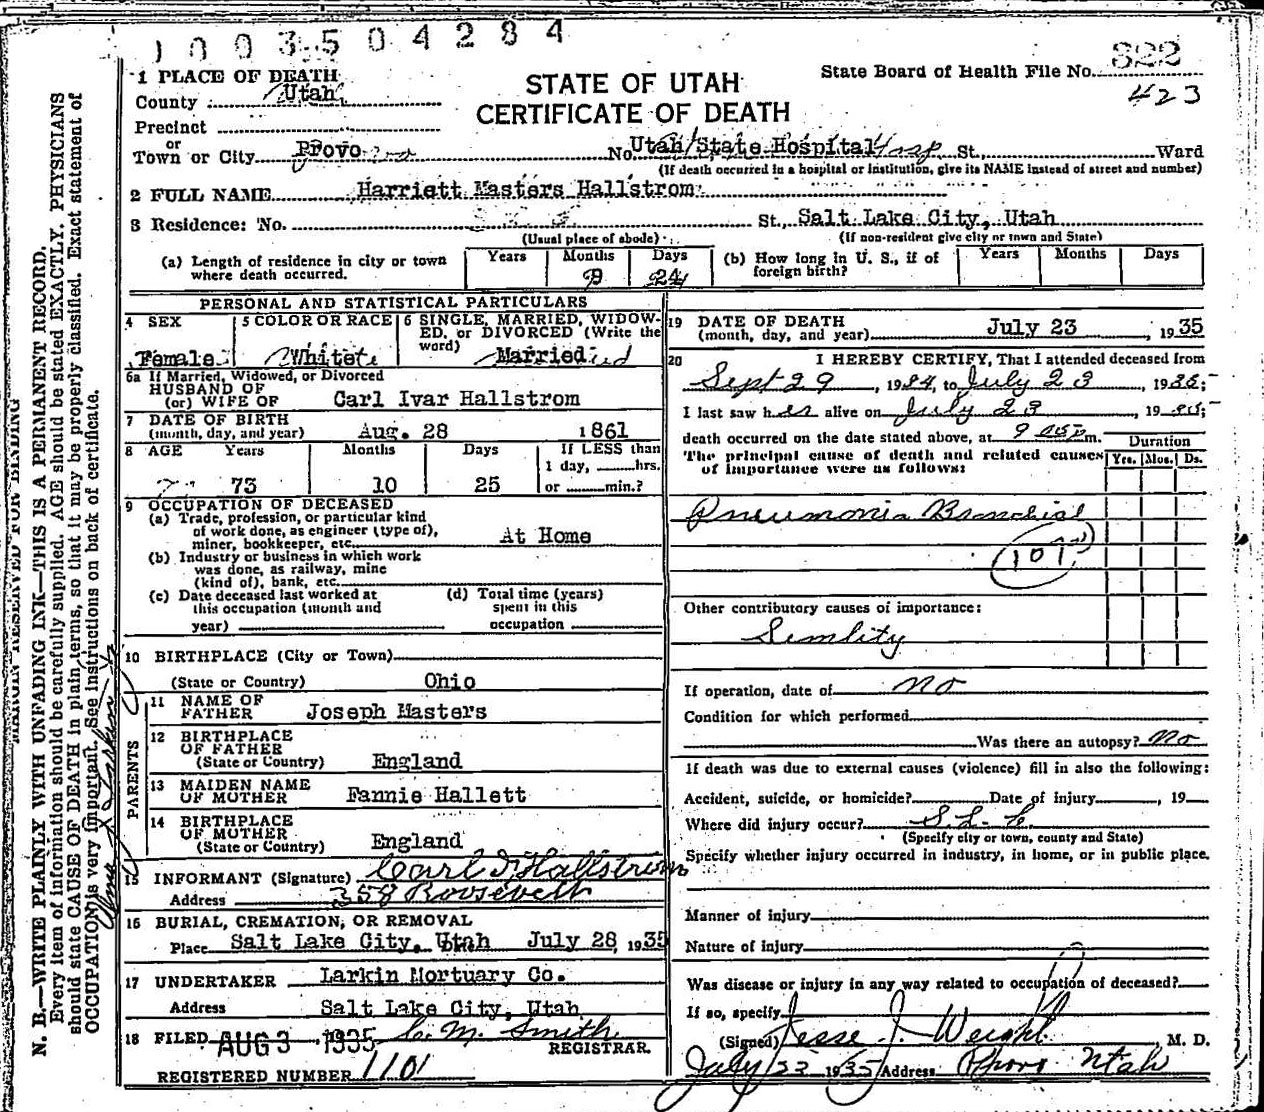 1003504284
State Board of Health File No. 822
423
STATE OF UTAH
CERTIFICATE OF DEATH
1 PLACE OF DEATH
County Utah
Precinct
or
Town or City Provo No. Utah State Hospital St., Ward
(If death occurred in a hospital or institution, give its NAME instead of street and number)
2 FULL NAME Harriett Masters Hallstrom
3 Residence: No. St., Salt Lake City, Utah
(Usual place of abode) (If non-resident give city or town and State)
(a) Length of residence in city or town where death occurred. Years Months 9 Days 24
(b) How long in U. S., if of foreign birth? Years Months Days
PERSONAL AND STATISTICAL PARTICULARS
4 SEX Female
5 COLOR OR RACE White
6 SINGLE, MARRIED, WIDOWED, or DIVORCED (Write the word) Married
6a If Married, Widowed, or Divorced
HUSBAND OF
(or) WIFE OF Carl Ivar Hallstrom
7 DATE OF BIRTH
(month, day, and year) Aug. 28 1861
8 AGE Years Months Days If LESS than
1 day, hrs.
73 10 25 or min.?
9 OCCUPATION OF DECEASED
(a) Trade, profession, or particular kind
of work done, as engineer (type of),
miner, bookkeeper, etc. At Home
(b) Industry or business in which work
was done, as railway, mine
(kind of), bank, etc.
(c) Date deceased last worked at
this occupation (month and
year)
(d) Total time (years)
spent in this
occupation
10 BIRTHPLACE (City or Town)
(State or Country) Ohio
PARENTS
11 NAME OF
FATHER Joseph Masters
12 BIRTHPLACE
OF FATHER
(State or Country) England
13 MAIDEN NAME
OF MOTHER Fannie Hallett
14 BIRTHPLACE
OF MOTHER
(State or Country) England
15 INFORMANT (Signature) Carl I Hallstrom
Address 358 Roosevelt
16 BURIAL, CREMATION, OR REMOVAL
Place Salt Lake City, Utah July 28, 1935
17 UNDERTAKER Larkin Mortuary Co.
Address Salt Lake City, Utah
18 FILED AUG 3 1935 C. M. Smith
REGISTRAR.
REGISTERED NUMBER 1101
19 DATE OF DEATH
(month, day, and year) July 23, 1935
20 I HEREBY CERTIFY, That I attended deceased from
Sept 29, 1934, to July 23, 1935;
I last saw her alive on July 23, 1935;
death occurred on the date stated above, at 9 m. Duration
The principal cause of death and related causes Yrs. Mos. Ds.
of importance were as follows:
Pneumonia Bronchial
107
Other contributory causes of importance:
Senility
If operation, date of no
Condition for which performed
Was there an autopsy? No
If death was due to external causes (violence) fill in also the following:
Accident, suicide, or homicide? Date of injury , 19
Where did injury occur? S. L. C.
(Specify city or town, county and State)
Specify whether injury occurred in industry, in home, or in public place.
Manner of injury
Nature of injury
Was disease or injury in any way related to occupation of deceased?
If so, specify
(Signed) Jesse J. Weight, M. D.
July 23 1935 Address Provo Utah
MARGIN RESERVED FOR BINDING
N. B.—WRITE PLAINLY WITH UNFADING INK—THIS IS A PERMANENT RECORD.
Every item of information should be carefully supplied. AGE should be stated EXACTLY. PHYSICIANS
should state CAUSE OF DEATH in plain terms, so that it may be properly classified. Exact statement of
OCCUPATION is very important. See instructions on back of certificate.